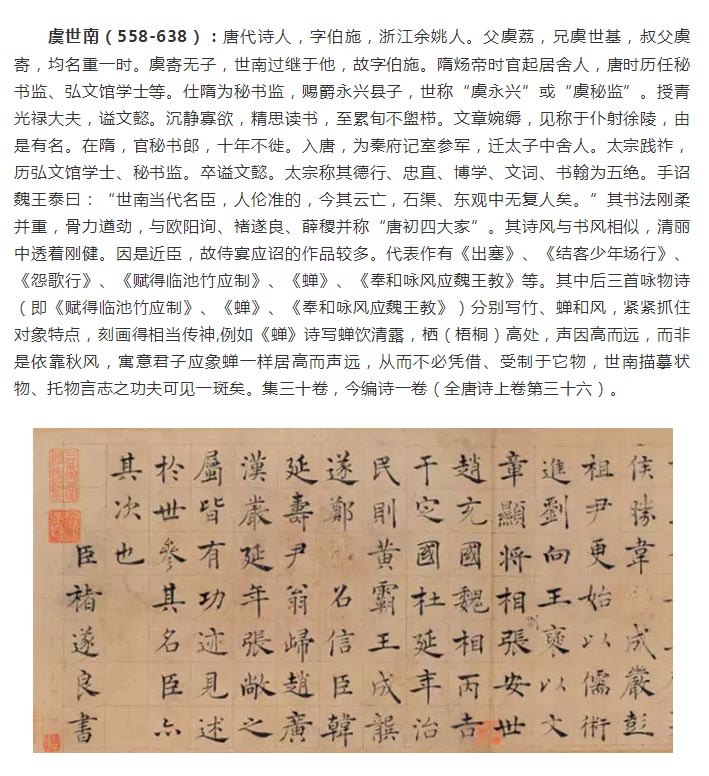 虞世南（558-638）：唐代诗人，字伯施，浙江余姚人。父虞荔，兄虞世基，叔父虞
寄，均名重一时。虞寄无子，世南过继于他，故字伯施。隋炀帝时官起居舍人，唐时历任秘
书监、弘文馆学士等。仕隋为秘书监，赐爵永兴县子，世称“虞永兴”或“虞秘监”。授青
光禄大夫，谥文懿。沉静寡欲，精思读书，至累旬不盥栉。文章婉缛，见称于仆射徐陵，由
是有名。在隋，官秘书郎，十年不徙。入唐，为秦府记室参军，迁太子中舍人。太宗践祚，
历弘文馆学士、秘书监。卒谥文懿。太宗称其德行、忠直、博学、文词、书翰为五绝。手诏
魏王泰曰：“世南当代名臣，人伦准的，今其云亡，石渠、东观中无复人矣。”其书法刚柔
并重，骨力遒劲，与欧阳询、褚遂良、薛稷并称“唐初四大家”。其诗风与书风相似，清丽
中透着刚健。因是近臣，故侍宴应诏的作品较多。代表作有《出塞》、《结客少年场行》、
《怨歌行》、《赋得临池竹应制》、《蝉》、《奉和咏风应魏王教》等。其中后三首咏物诗
（即《赋得临池竹应制》、《蝉》、《奉和咏风应魏王教》）分别写竹、蝉和风，紧紧抓住
对象特点，刻画得相当传神,例如《蝉》诗写蝉饮清露，栖（梧桐）高处，声因高而远，而非
是依靠秋风，寓意君子应象蝉一样居高而声远，从而不必凭借、受制于它物，世南描摹状
物、托物言志之功夫可见一斑矣。集三十卷，今编诗一卷（全唐诗上卷第三十六）。
侯勝韋成嚴彭
祖尹更始以儒術
進劉向王褒以文
章顯將相張安世
趙充國魏相丙吉
于定國杜延年治
民則黃霸王成龔
遂鄭名信臣韓
延壽尹翁歸趙廣
漢嚴延年張敞之
屬皆有功迹見述
於世參其名臣亦
其次也
臣褚遂良書